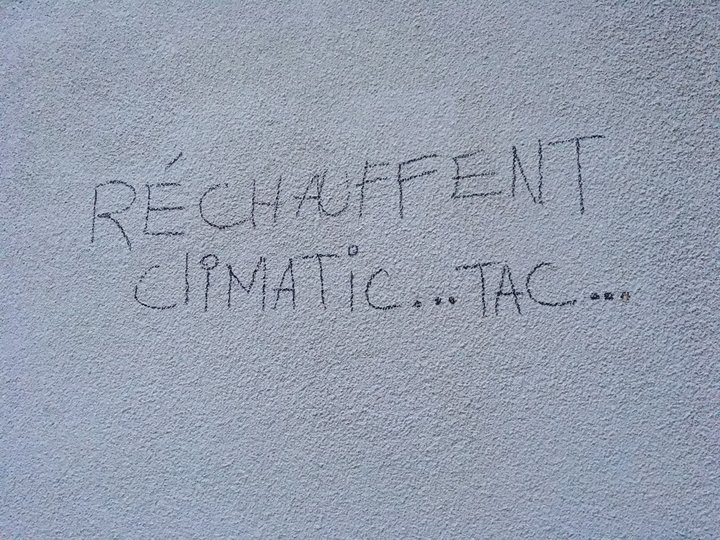 RÉCHAUFFENT
CLIMATIC...TAC...